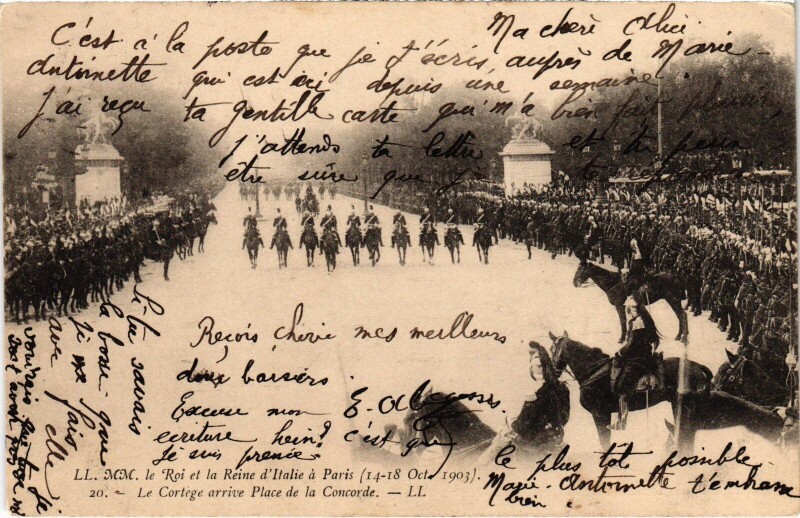 Ma chère Alice
C'est à la poste que je t'écris, auprès de Marie-
Antoinette qui est ici depuis une semaine.
J'ai reçu ta gentille carte qui m'a bien fait plaisir,
j'attends ta lettre et tu peux
être sûre que j te
Reçois chérie mes meilleurs
doux baisers.
Excuse mon
écriture hein? c'est que
je suis pressée
le plus tôt possible
Marie-Antoinette t'embrasse
bien.
Si tu savais
la boue que
j'ai
avec elle
LL. MM. le Roi et la Reine d'Italie à Paris (14-18 Oct. 1903).
20. - Le Cortège arrive Place de la Concorde. - LL